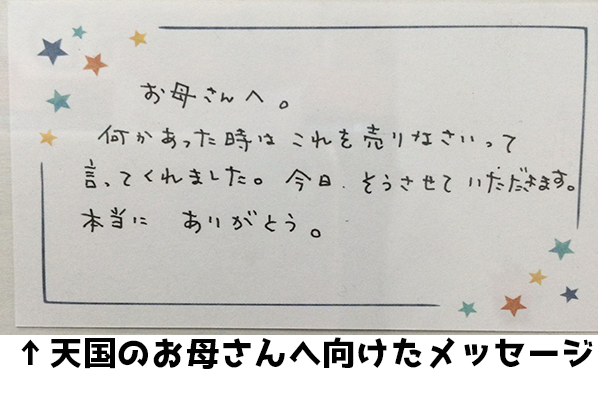 お母さんへ。
何かあった時は これを売りなさいって
言ってくれました。今日、そうさせて いただきます。
本当に ありがとう。
↑天国のお母さんへ向けたメッセージ